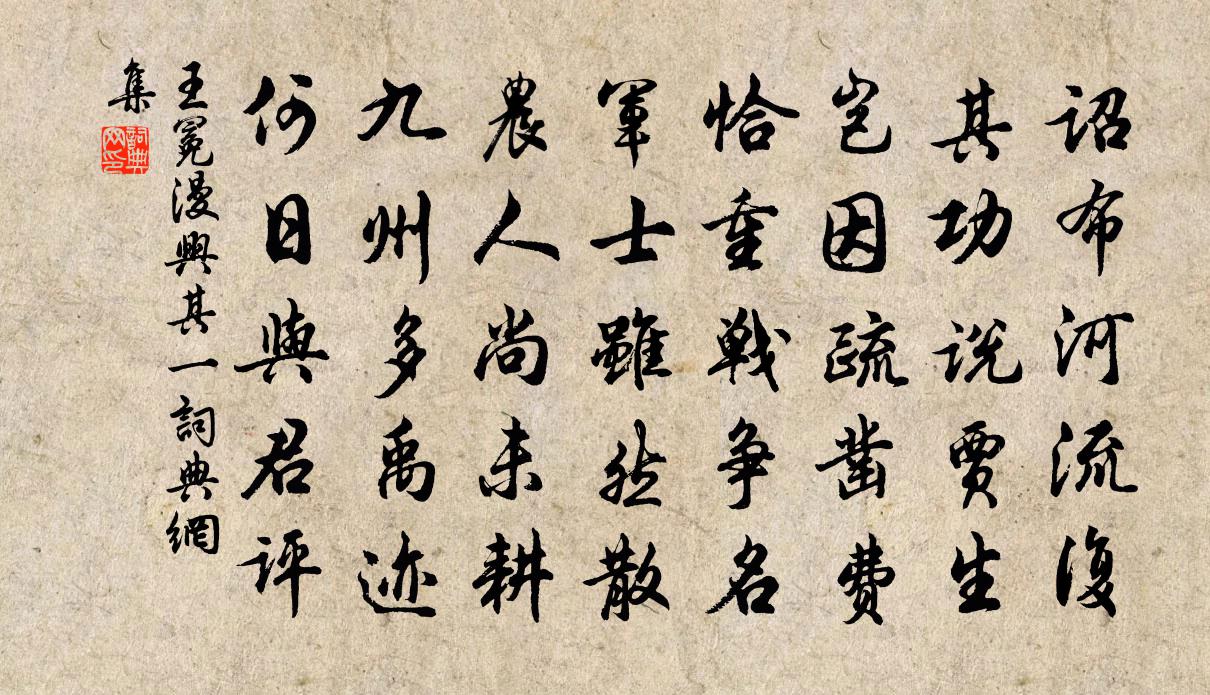 詔布河流復
其功説賈生
豈因疏鑿費
恰重戰争名
軍士雖然散
農人尚未耕
九州多禹迹
何日與君評
王冕漫興其一詞典網
集
詞典
网印